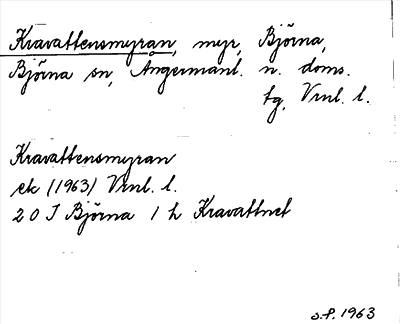 Kravattensmyran, myr, Björna,
Björna sn, Ångermanl. n. doms.
tg, Vrnl. l.
Kravattensmyran
ek (1963) Vrnl. l.
20 J Björna 1 h Kravattnet
S.F. 1963